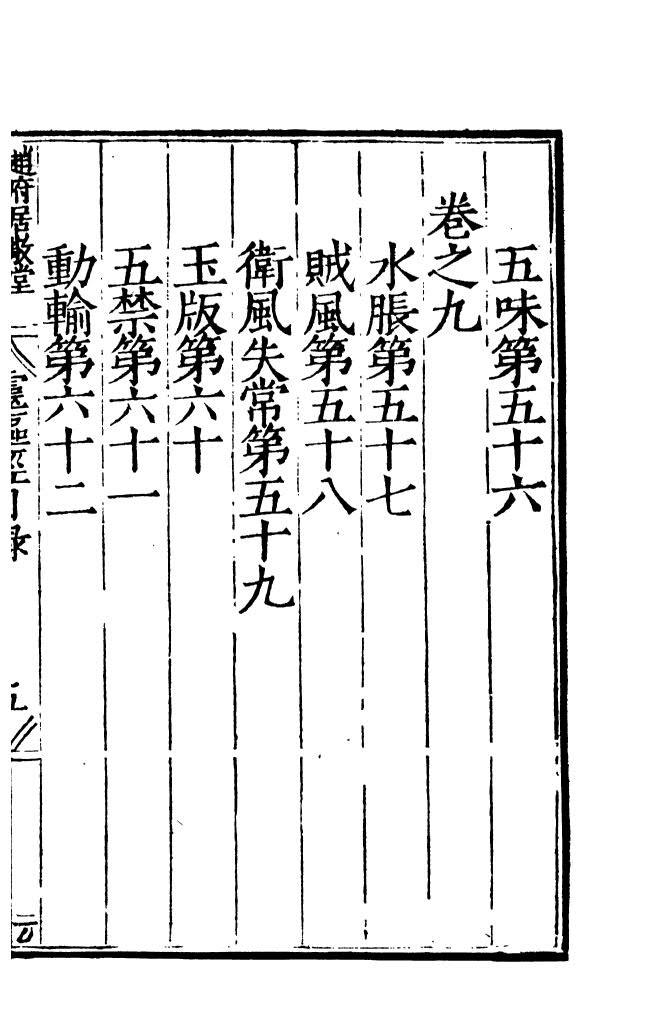 五味第五十六
卷之九
水脹第五十七
賊風第五十八
衛風失常第五十九
玉版第六十
五禁第六十一
動輸第六十二
趙府居敬堂